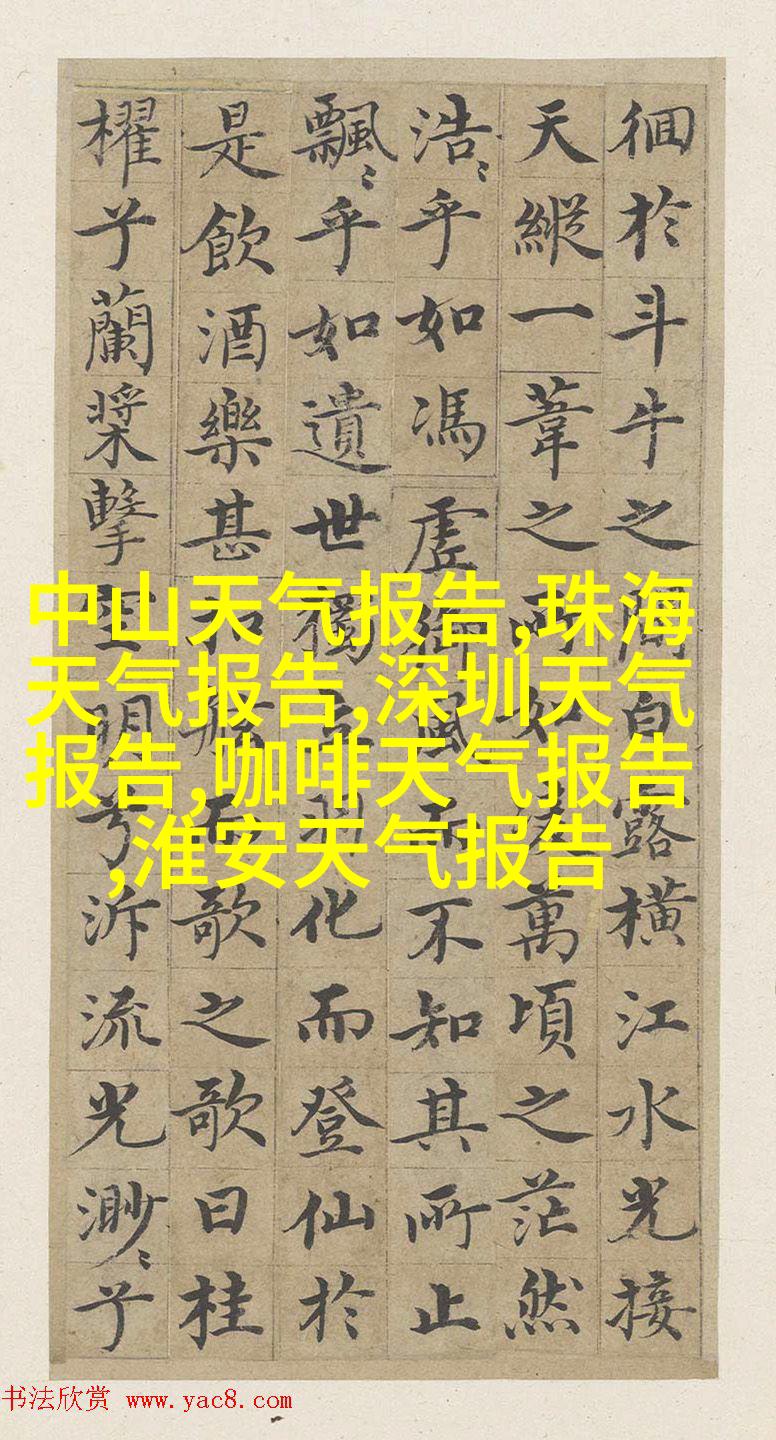 徊於斗牛之間白露橫江水光接
天縱一葦之所如凌萬頃之茫然
浩〻乎如馮虛御風而不知其所止
飄〻乎如遺世獨立羽化而登仙於
是飲酒樂甚扣舷而歌之歌曰桂
櫂兮蘭槳擊空明兮泝流光渺〻兮
中山天气报告,珠海
天气报告,深圳天气
报告,咖啡天气报告
,淮安天气报告
书法欣赏 www.yac8.com